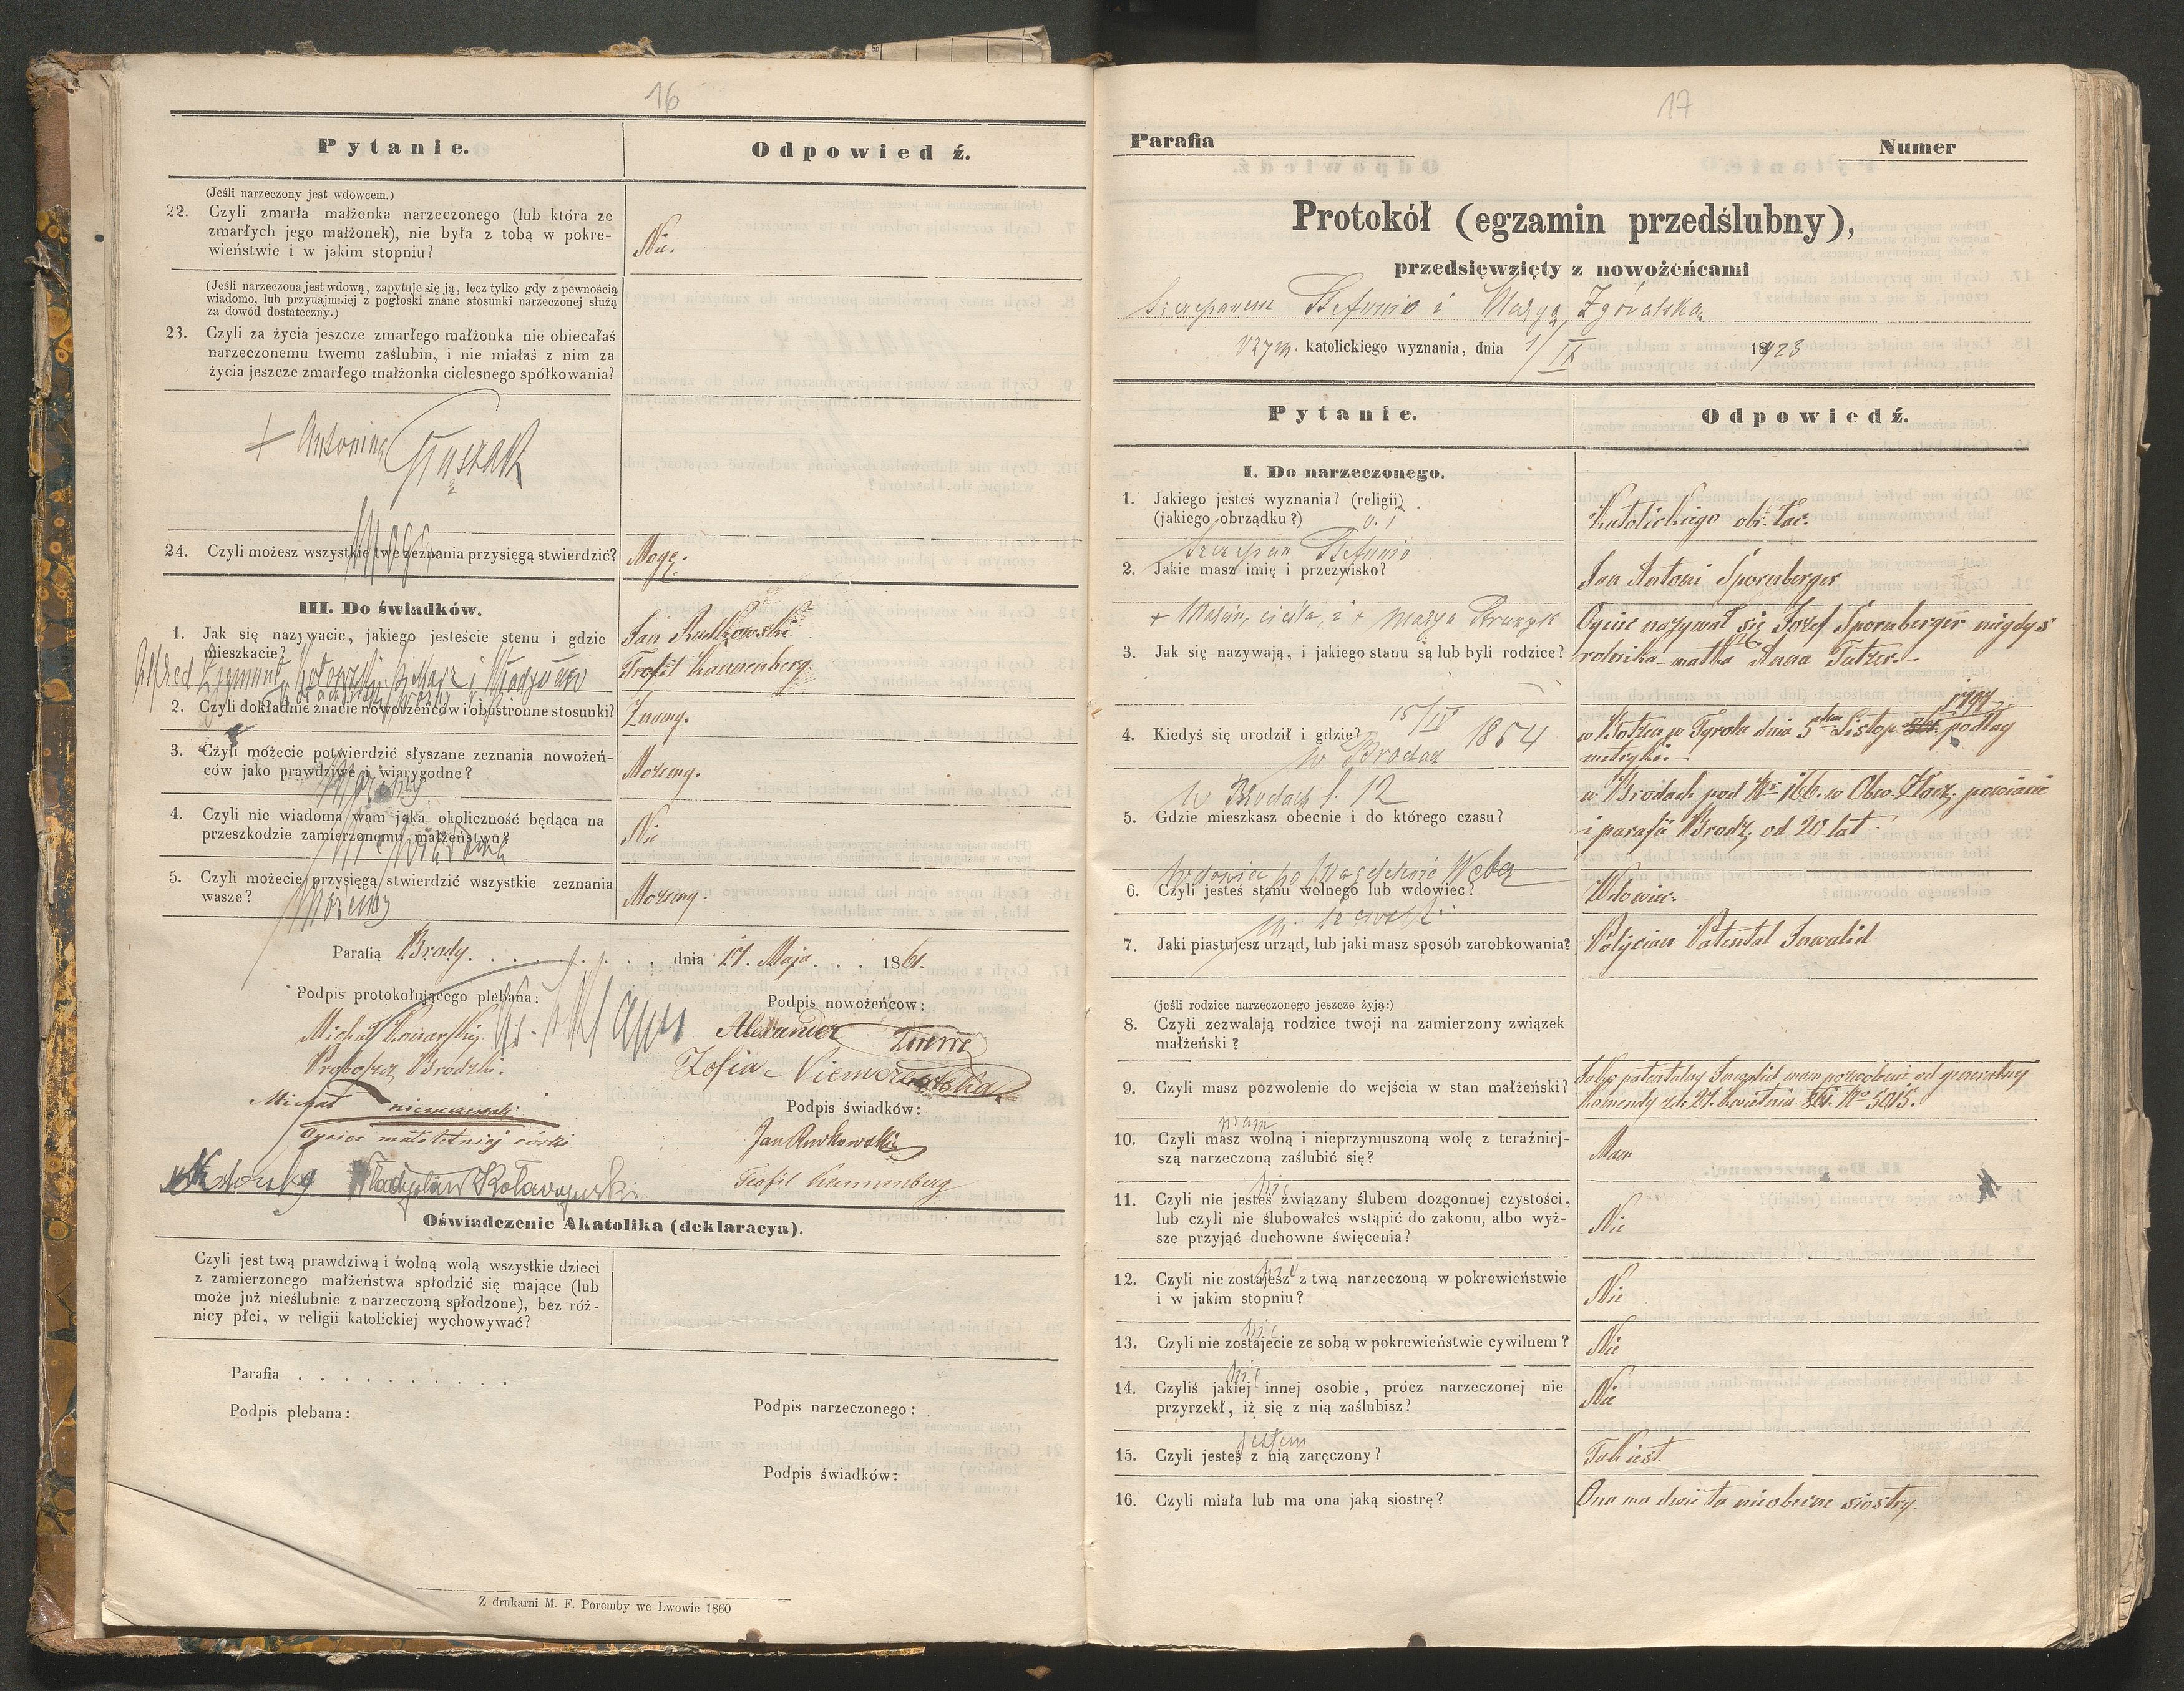 16
Pytanie.
Odpowiedź.
(Jeśli narzeczony jest wdowcem.)
22. Czyli zmarła małżonka narzeczonego (lub która ze
zmarłych jego małżonek), nie była z tobą w pokre-
wieństwie i w jakim stopniu?
Nie.
(Jeśli narzeczona jest wdową, zapytuje się ją, lecz tylko gdy z pewnością
wiadomo, lub przynajmniej z pogłoski znane stosunki narzeczonej służą
za dowód dostateczny.)
23. Czyli za życia jeszcze zmarłego małżonka nie obiecałaś
narzeczonemu twemu zaślubin, i nie miałaś z nim za
życia jeszcze zmarłego małżonka cielesnego spółkowania?
+ Antonina
Mogę
24. Czyli możesz wszystkie twe zeznania przysięgą stwierdzić?
Mogę.
III. Do świadków.
1. Jak się nazywacie, jakiego jesteście stenu i gdzie
mieszkacie?
Jan Rudkowski
Teofil Kannenberg.
Alfred Zygmunt
2. Czyli dokładnie znacie noworzeńców i obustronne stosunki?
Znamy.
3. Czyli możecie potwierdzić słyszane zeznania nowożeń-
ców jako prawdziwe i wiarygodne?
Możemy.
4. Czyli nie wiadoma wam jaka okoliczność będąca na
przeszkodzie zamierzonemu małżeństwu?
Nie
5. Czyli możecie przysięgą stwierdzić wszystkie zeznania
wasze?
Możemy
Możemy.
Parafia Brody. dnia 17. Maja 1861.
Podpis protokołującego plebana:
Podpis nowożeńcow:
Michał
Alexander
Proboszcz Brodzki.
Zofia Niemczewska
Michał Niemczewski
Podpis świadków:
Ojciec małoletniej córki
Jan Rudkowski
Władysław
Teofil Kannenberg
Oświadczenie Akatolika (deklaracya).
Czyli jest twą prawdziwą i wolną wolą wszystkie dzieci
z zamierzonego małżeństwa spłodzić się mające (lub
może już nieślubnie z narzeczoną spłodzone), bez róż-
nicy płci, w religii katolickiej wychowywać?
Parafia . . . . . . . . . .
Podpis plebana:
Podpis narzeczonego:
Podpis świadków:
Z drukarni M. F. Poremby we Lwowie 1860
17
Parafia
Numer
Protokół (egzamin przedślubny),
przedsięwzięty z nowożeńcami
Szczepanem Stefunio i Maryą Zgóralską
rzym. katolickiego wyznania, dnia 1/IX 1923
Pytanie.
Odpowiedź.
I. Do narzeczonego.
1. Jakiego jesteś wyznania? (religii)
(jakiego obrządku?)
Katolickiego obr. łac.
Szczepan Stefunio
2. Jakie masz imię i przezwisko?
Jan Antoni Spornberger
3. Jak się nazywają, i jakiego stanu są lub byli rodzice?
Ojciec nazywał się Josef Spornberger niegdyś
rolnika - matka Anna Tutzer.
15/IV 1854
4. Kiedyś się urodził i gdzie?
w Brodach
w Botzen w Tyrolu dnia 5 Listop. 1797 podług
metryki.
w Brodach l. 12
5. Gdzie mieszkasz obecnie i do którego czasu?
w Brodach pod Nr 166. w Obw. Złocz. powiecie
i parafii Brody, od 20 lat
wdowiec po Magdalenie
6. Czyli jesteś stanu wolnego lub wdowiec?
Wdowiec.
7. Jaki piastujesz urząd, lub jaki masz sposób zarobkowania?
Patental Inwalid
(jeśli rodzice narzeczonego jeszcze żyją:)
8. Czyli zezwalają rodzice twoji na zamierzony związek
małżeński?
9. Czyli masz pozwolenie do wejścia w stan małżeński?
Jako patentalny Inwalid mam pozwolenie od generalnej
Komendy zd. 27. Kwietnia 861. No 5015.
mam
10. Czyli masz wolną i nieprzymuszoną wolę z teraźniej-
szą narzeczoną zaślubić się?
Mam
nie
11. Czyli nie jesteś związany ślubem dozgonnej czystości,
lub czyli nie ślubowałeś wstąpić do zakonu, albo wyż-
sze przyjąć duchowne święcenia?
Nie
nie
12. Czyli nie zostajesz z twą narzeczoną w pokrewieństwie
i w jakim stopniu?
Nie
nie
13. Czyli nie zostajecie ze sobą w pokrewieństwie cywilnem?
Nie
nie
14. Czyliś jakiej innej osobie, prócz narzeczonej nie
przyrzekł, iż się z nią zaślubisz?
Nie
jestem
15. Czyli jesteś z nią zaręczony?
Tak jest.
16. Czyli miała lub ma ona jaką siostrę?
Ona ma dwie tu nieobecne siostry.